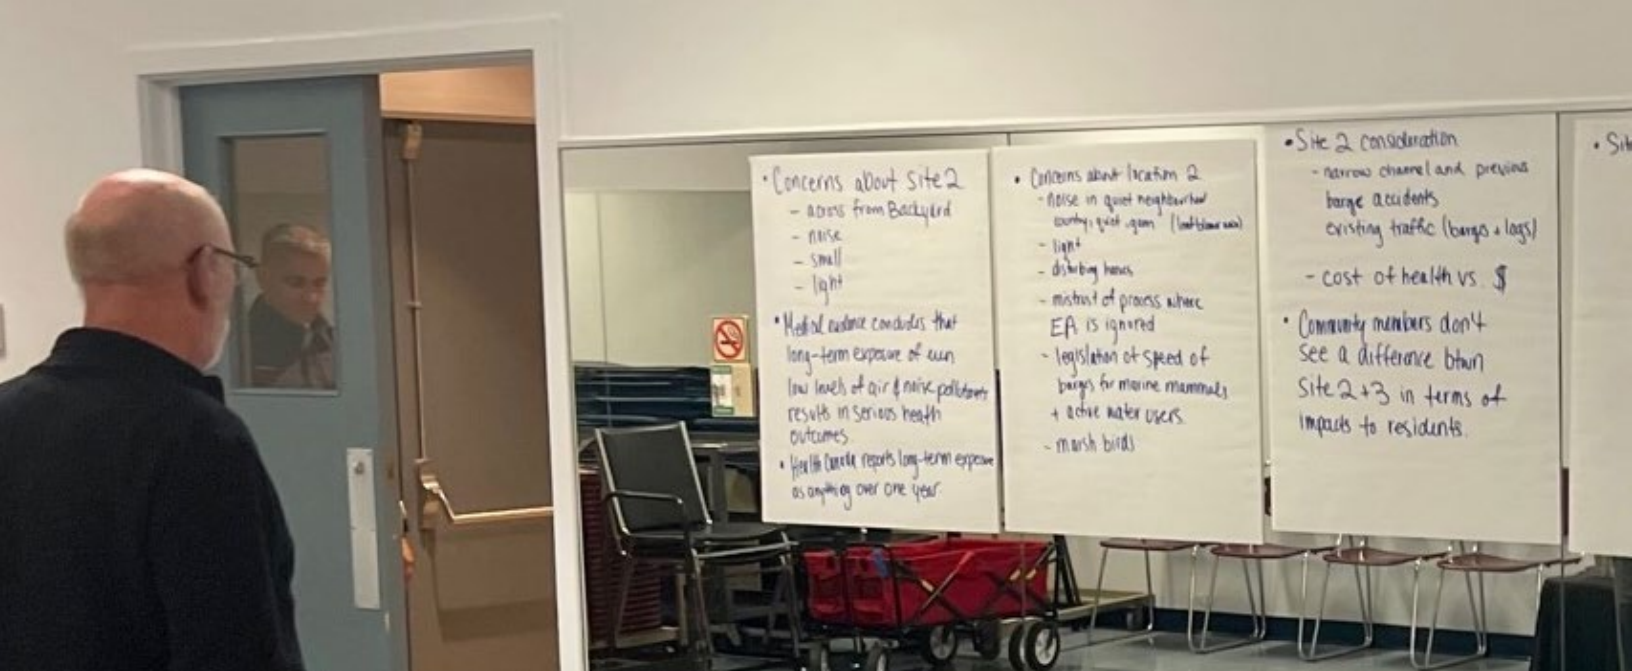 • Concerns about Site 2
- across from Backyard
- noise
- smell
- light
• Medical evidence concludes that
long-term exposure of even
low levels of air & noise pollutants
results in serious health
outcomes.
• Health Canada reports long-term exposure
as anything over one year.
• Concerns about location 2
- noise in quiet neighbourhood
country, quiet
- light
- disturbing
- mistrust of process where
EA is ignored
- legislation of speed of
barges for marine mammals
+ active water users.
- marsh birds
• Site 2 consideration
- narrow channel and previous
barge accidents
existing traffic (barges + logs)
- cost of health vs. $
• Community members don't
see a difference btwn
site 2+3 in terms of
impacts to residents.
• Sit